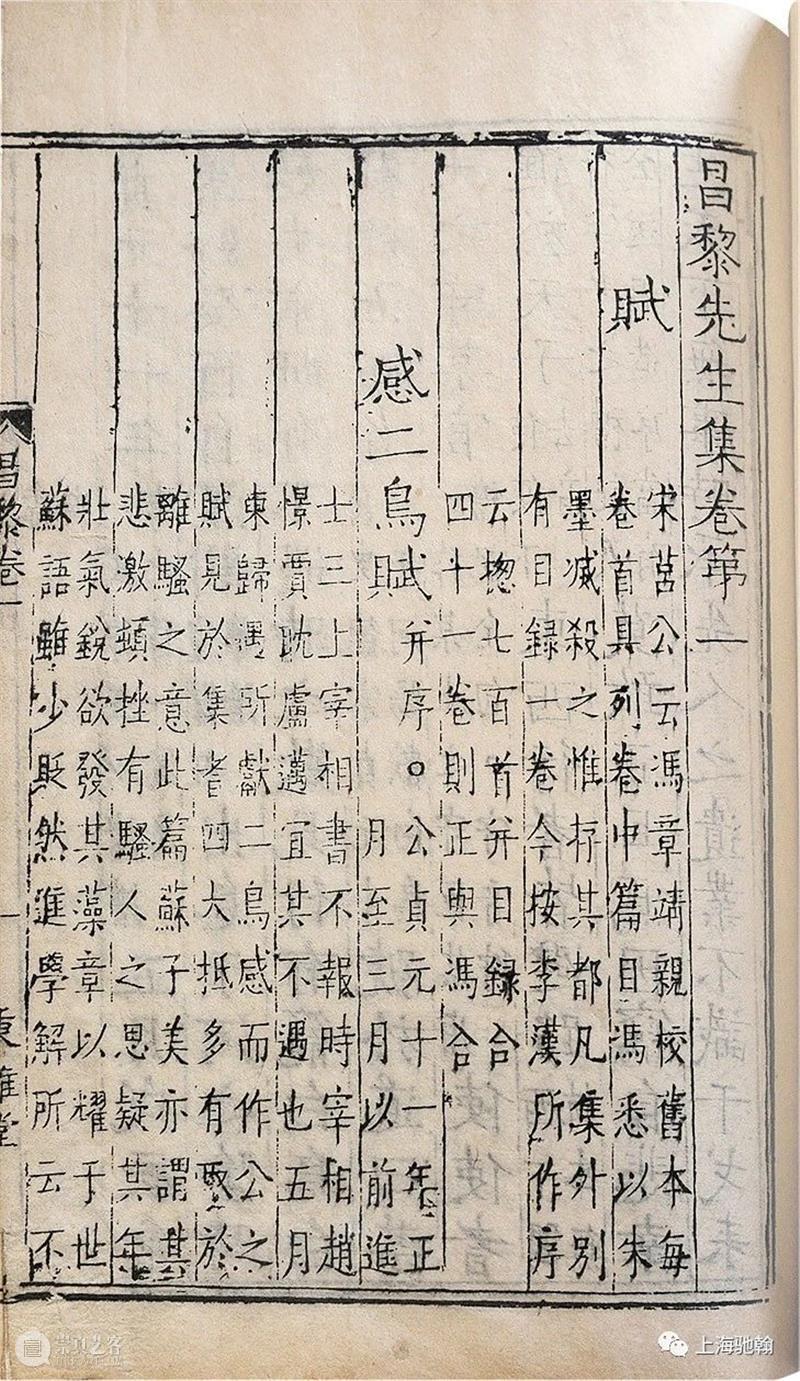 昌黎先生集卷第一
賦
宋莒公云馮章靖親校舊本每
卷首具列卷中篇目馮悉以朱
墨滅殺之惟存其都凡集外别
有目録一卷今按李漢所作序
云揔七百首并目録合
四十一卷則正與馮合
感二鳥賦 并序。公貞元十一年正
月至三月以前進
士三上宰相書不報時宰相趙
憬賈耽盧邁宜其不遇也五月
東歸遇所獻二鳥感而作公之
賦見於集者四大抵多有取於
離騷之意此篇蘇子美亦謂其
悲激頓挫有騷人之思疑其年
壯氣銳欲發其藻章以耀于世
蘇語雖少貶然進學解所云不
昌黎卷一
一
東雅堂
崇真艺客
上海驰翰